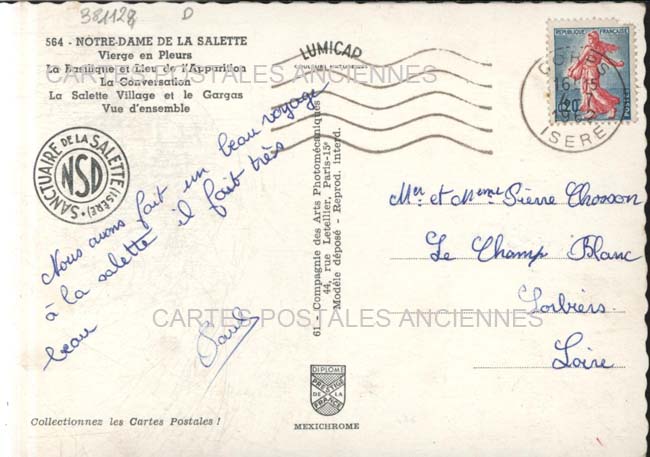 381128 D
564 - NOTRE-DAME DE LA SALETTE
Vierge en Pleurs
La Basilique et Lieu de l'Apparition
La Conversation
La Salette Village et le Gargas
Vue d'ensemble
LUMICAP
COULEURS NATURELLES
REPUBLIQUE FRANÇAISE
POSTES
CORPS
16-15
1962
ISERE
CARTES POSTALES ANCIENNES
SANCTUAIRE DE LA SALETTE (ISÈRE)
NSD
Nous avons fait un beau voyage
à la salette il fait très
beau
61 - Compagnie des Arts Photomécaniques
44, rue Letellier, Paris-15e
Modèle déposé - Reprod. interd.
Mr et Mme Pierre
Le Champ Blanc
Sorbiers
Loire
CARTES POSTALES ANCIENNES
DIPLOME
PRESTIGE
DE LA
FRANCE
MEXICHROME
Collectionnez les Cartes Postales !